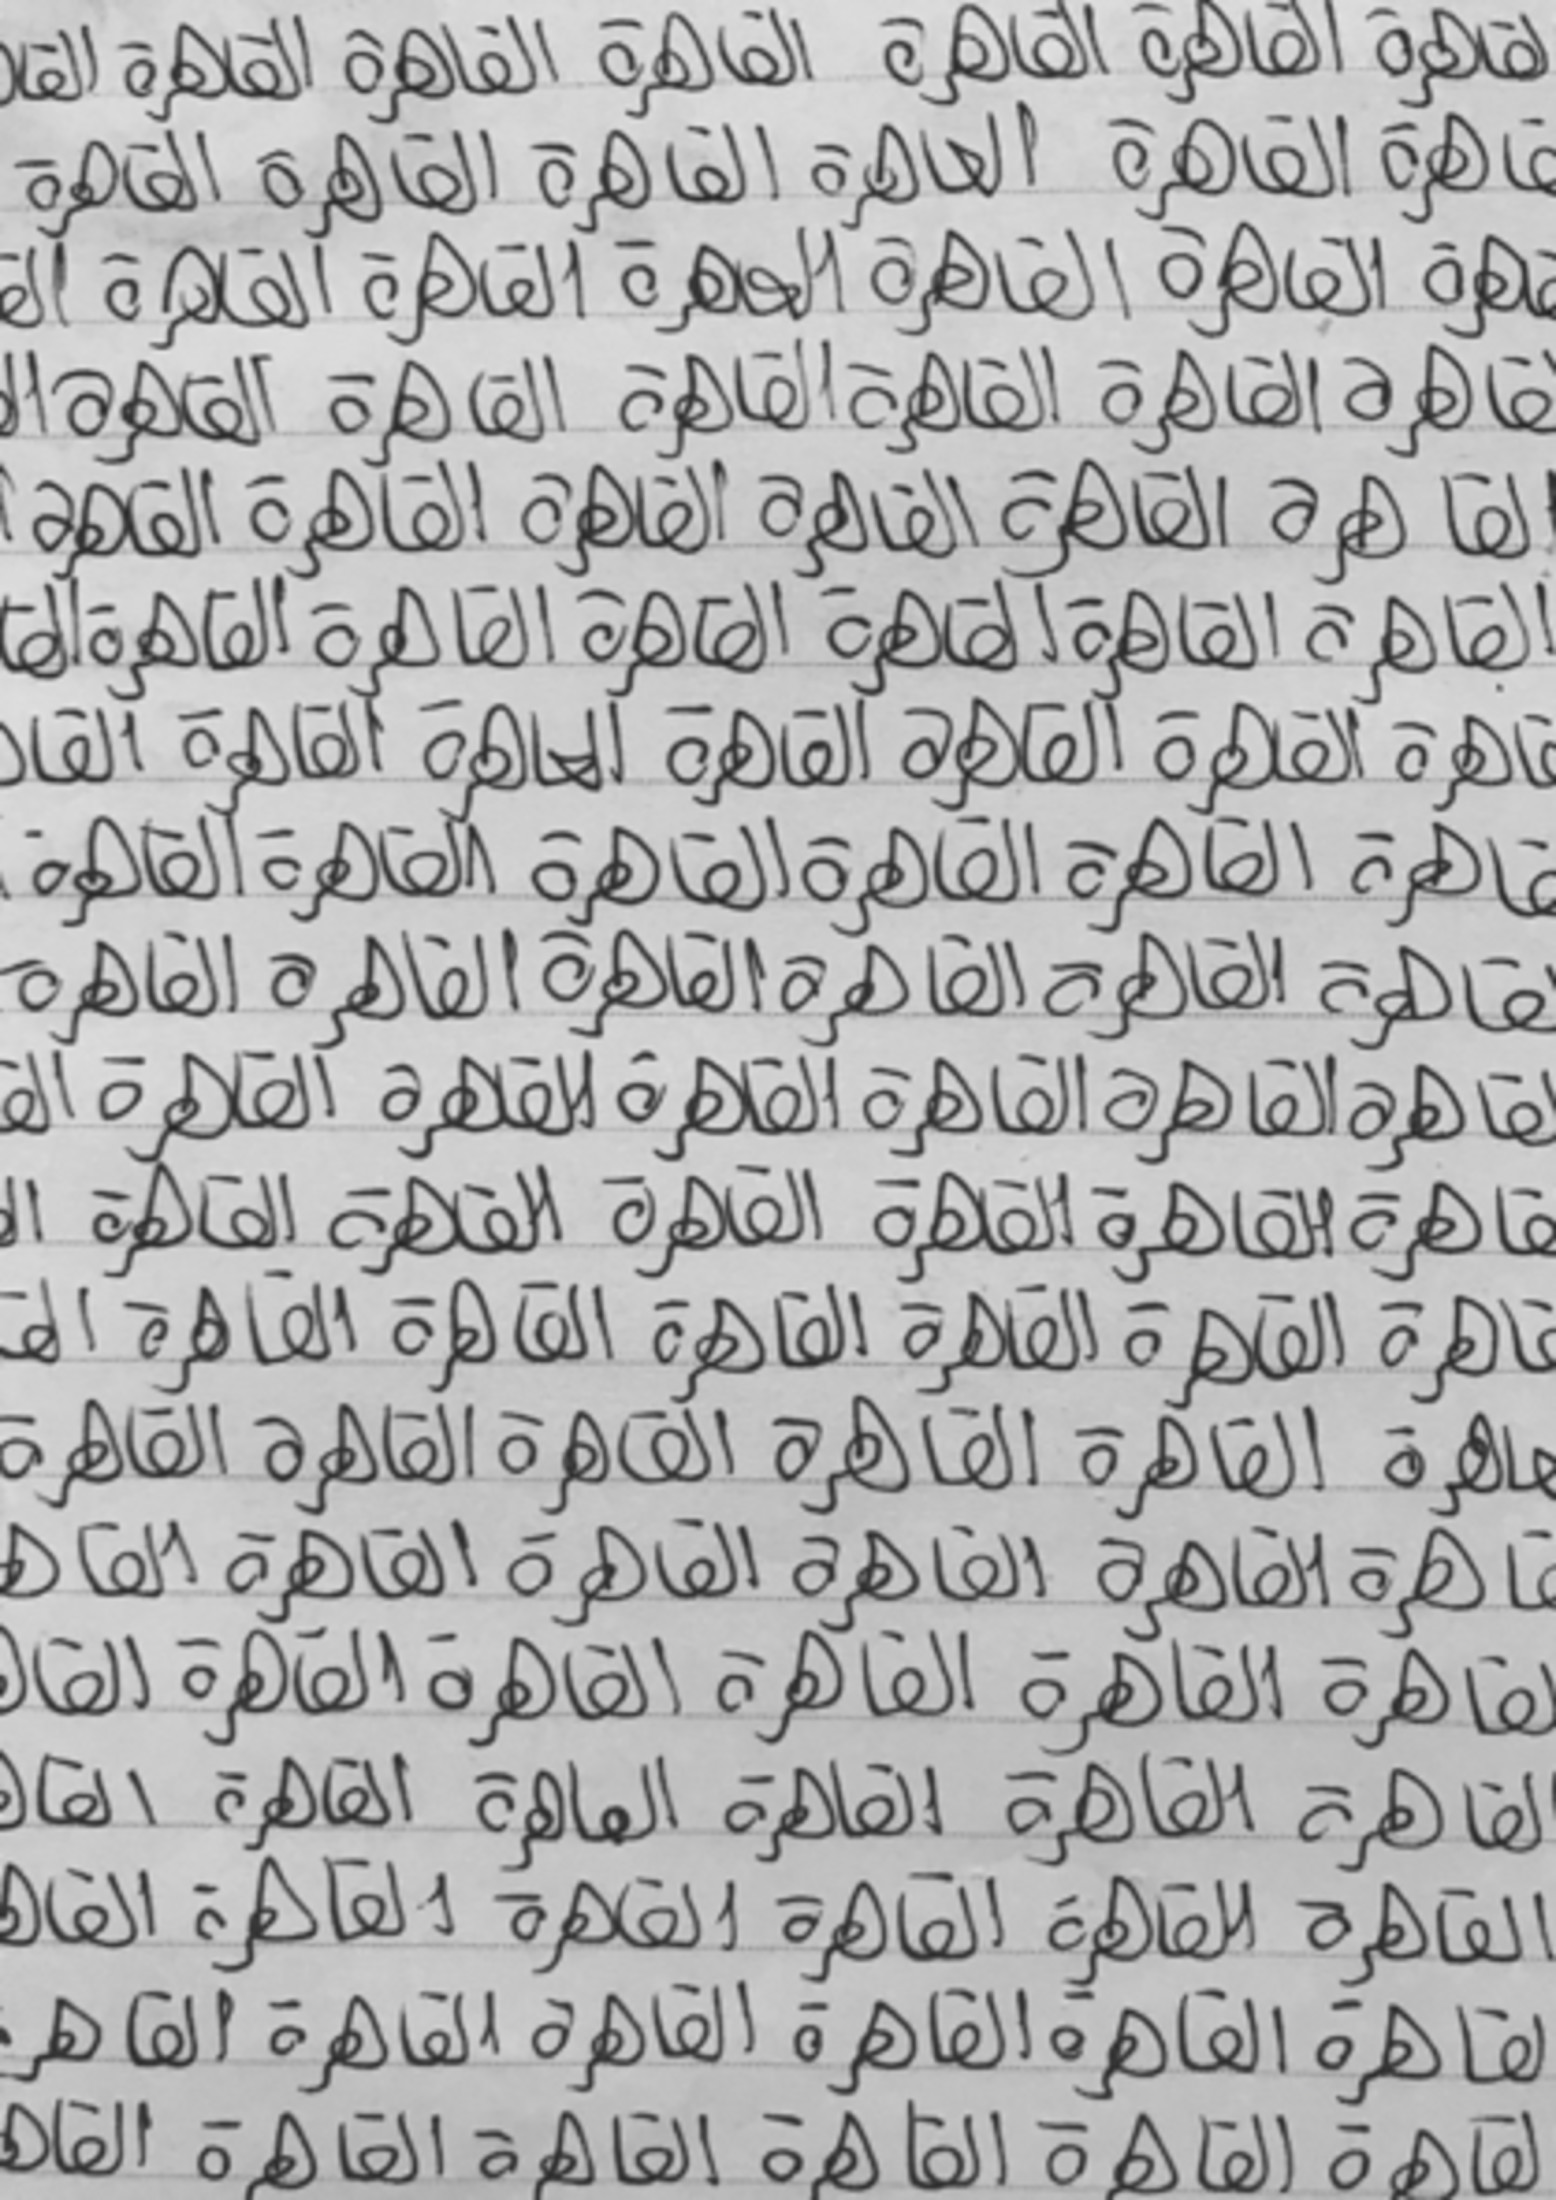 لقاهرة القاهرة القاهرة القاهرة القاهرة القاهرة القا
قاهرة القاهرة القاهرة القاهرة القاهرة القاهرة
قاهرة القاهرة القاهرة القاهرة القاهرة القاهرة الق
قاهرة القاهرة القاهرة القاهرة القاهرة القاهرة ال
القاهرة القاهرة القاهرة القاهرة القاهرة القاهرة ا
القاهرة القاهرة القاهرة القاهرة القاهرة القاهرة القا
قاهرة القاهرة القاهرة القاهرة القاهرة القاهرة القا
قاهرة القاهرة القاهرة القاهرة القاهرة القاهرة
قاهرة القاهرة القاهرة القاهرة القاهرة القاهرة
لقاهرة القاهرة القاهرة القاهرة القاهرة القاهرة الق
قاهرة القاهرة القاهرة القاهرة القاهرة القاهرة ال
قاهرة القاهرة القاهرة القاهرة القاهرة القاهرة الق
قاهرة القاهرة القاهرة القاهرة القاهرة القاهرة
قاهرة القاهرة القاهرة القاهرة القاهرة القاه
لقاهرة القاهرة القاهرة القاهرة القاهرة القا
القاهرة القاهرة القاهرة القاهرة القاهرة القا
القاهرة القاهرة القاهرة القاهرة القاهرة القاه
لقاهرة القاهرة القاهرة القاهرة القاهرة القاهر
لقاهرة القاهرة القاهرة القاهرة القاهرة القاه